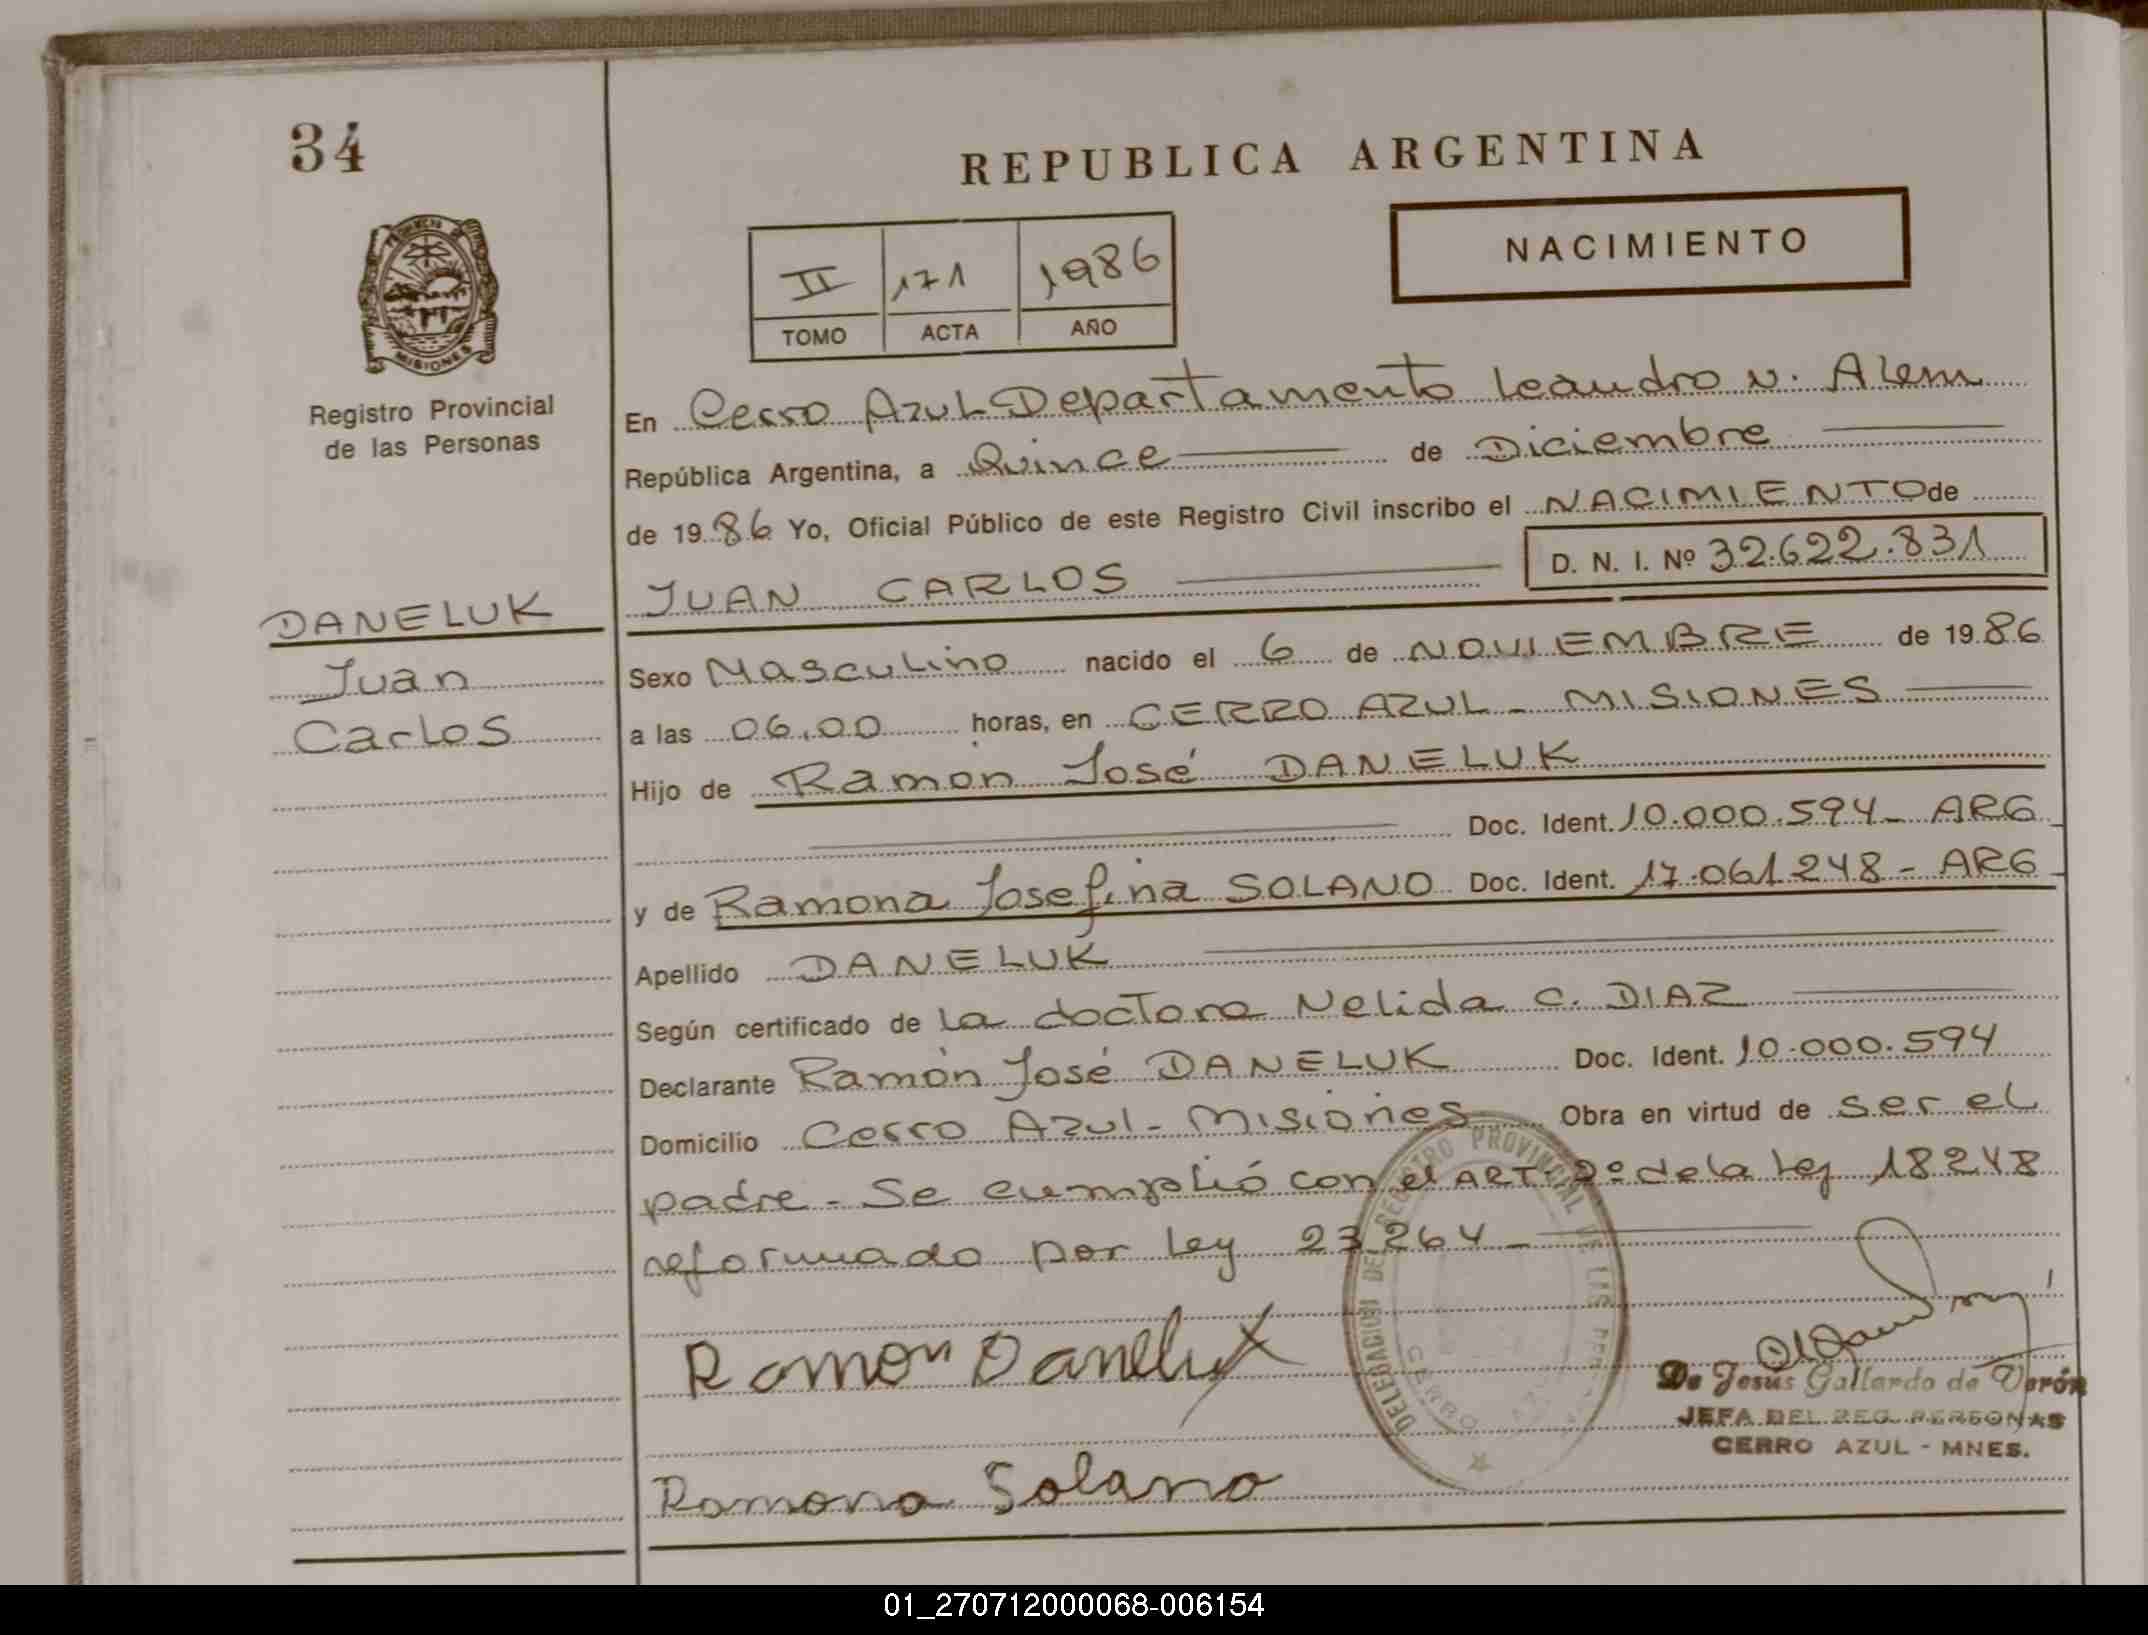 34
REPUBLICA ARGENTINA
NACIMIENTO
II 171 1986
TOMO ACTA AÑO
MISIONES
Registro Provincial
de las Personas
En Cerro Azul Departamento Leandro N. Alem
República Argentina, a Quince de Diciembre
de 1986 Yo, Oficial Público de este Registro Civil inscribo el NACIMIENTO de
D. N. I. Nº 32.622.831
JUAN CARLOS
DANELUK
Juan
Carlos
Sexo Masculino nacido el 6 de NOVIEMBRE de 1986
a las 06,00 horas, en CERRO AZUL - MISIONES
Hijo de Ramón José DANELUK
Doc. Ident. 10.000.594 - ARG
y de Ramona Josefina SOLANO Doc. Ident. 17.061.248 - ARG
Apellido DANELUK
Según certificado de la doctora Nelida C. DIAZ
Declarante Ramón José DANELUK Doc. Ident. 10.000.594
Domicilio Cerro Azul - Misiones Obra en virtud de ser el
padre - Se cumplió con el ART. 2º de la Ley 18248
reformado por Ley 23.264 -
Ramon Daneluk
Ramona Solano
DELEGACION DEL REGISTRO PROVINCIAL DE LAS
De Jesús Gallardo de Verón
JEFA DEL REG. PERSONAS
CERRO AZUL - MNES.
01_270712000068-006154